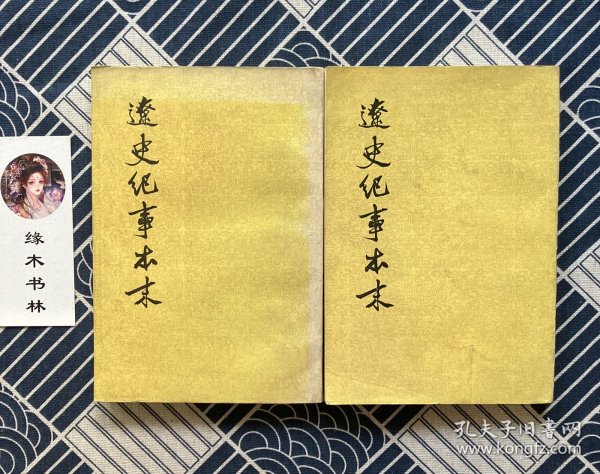 遼史纪事本末
遼史纪事本末
缘木书林
孔夫子旧书网
www.kongfz.com